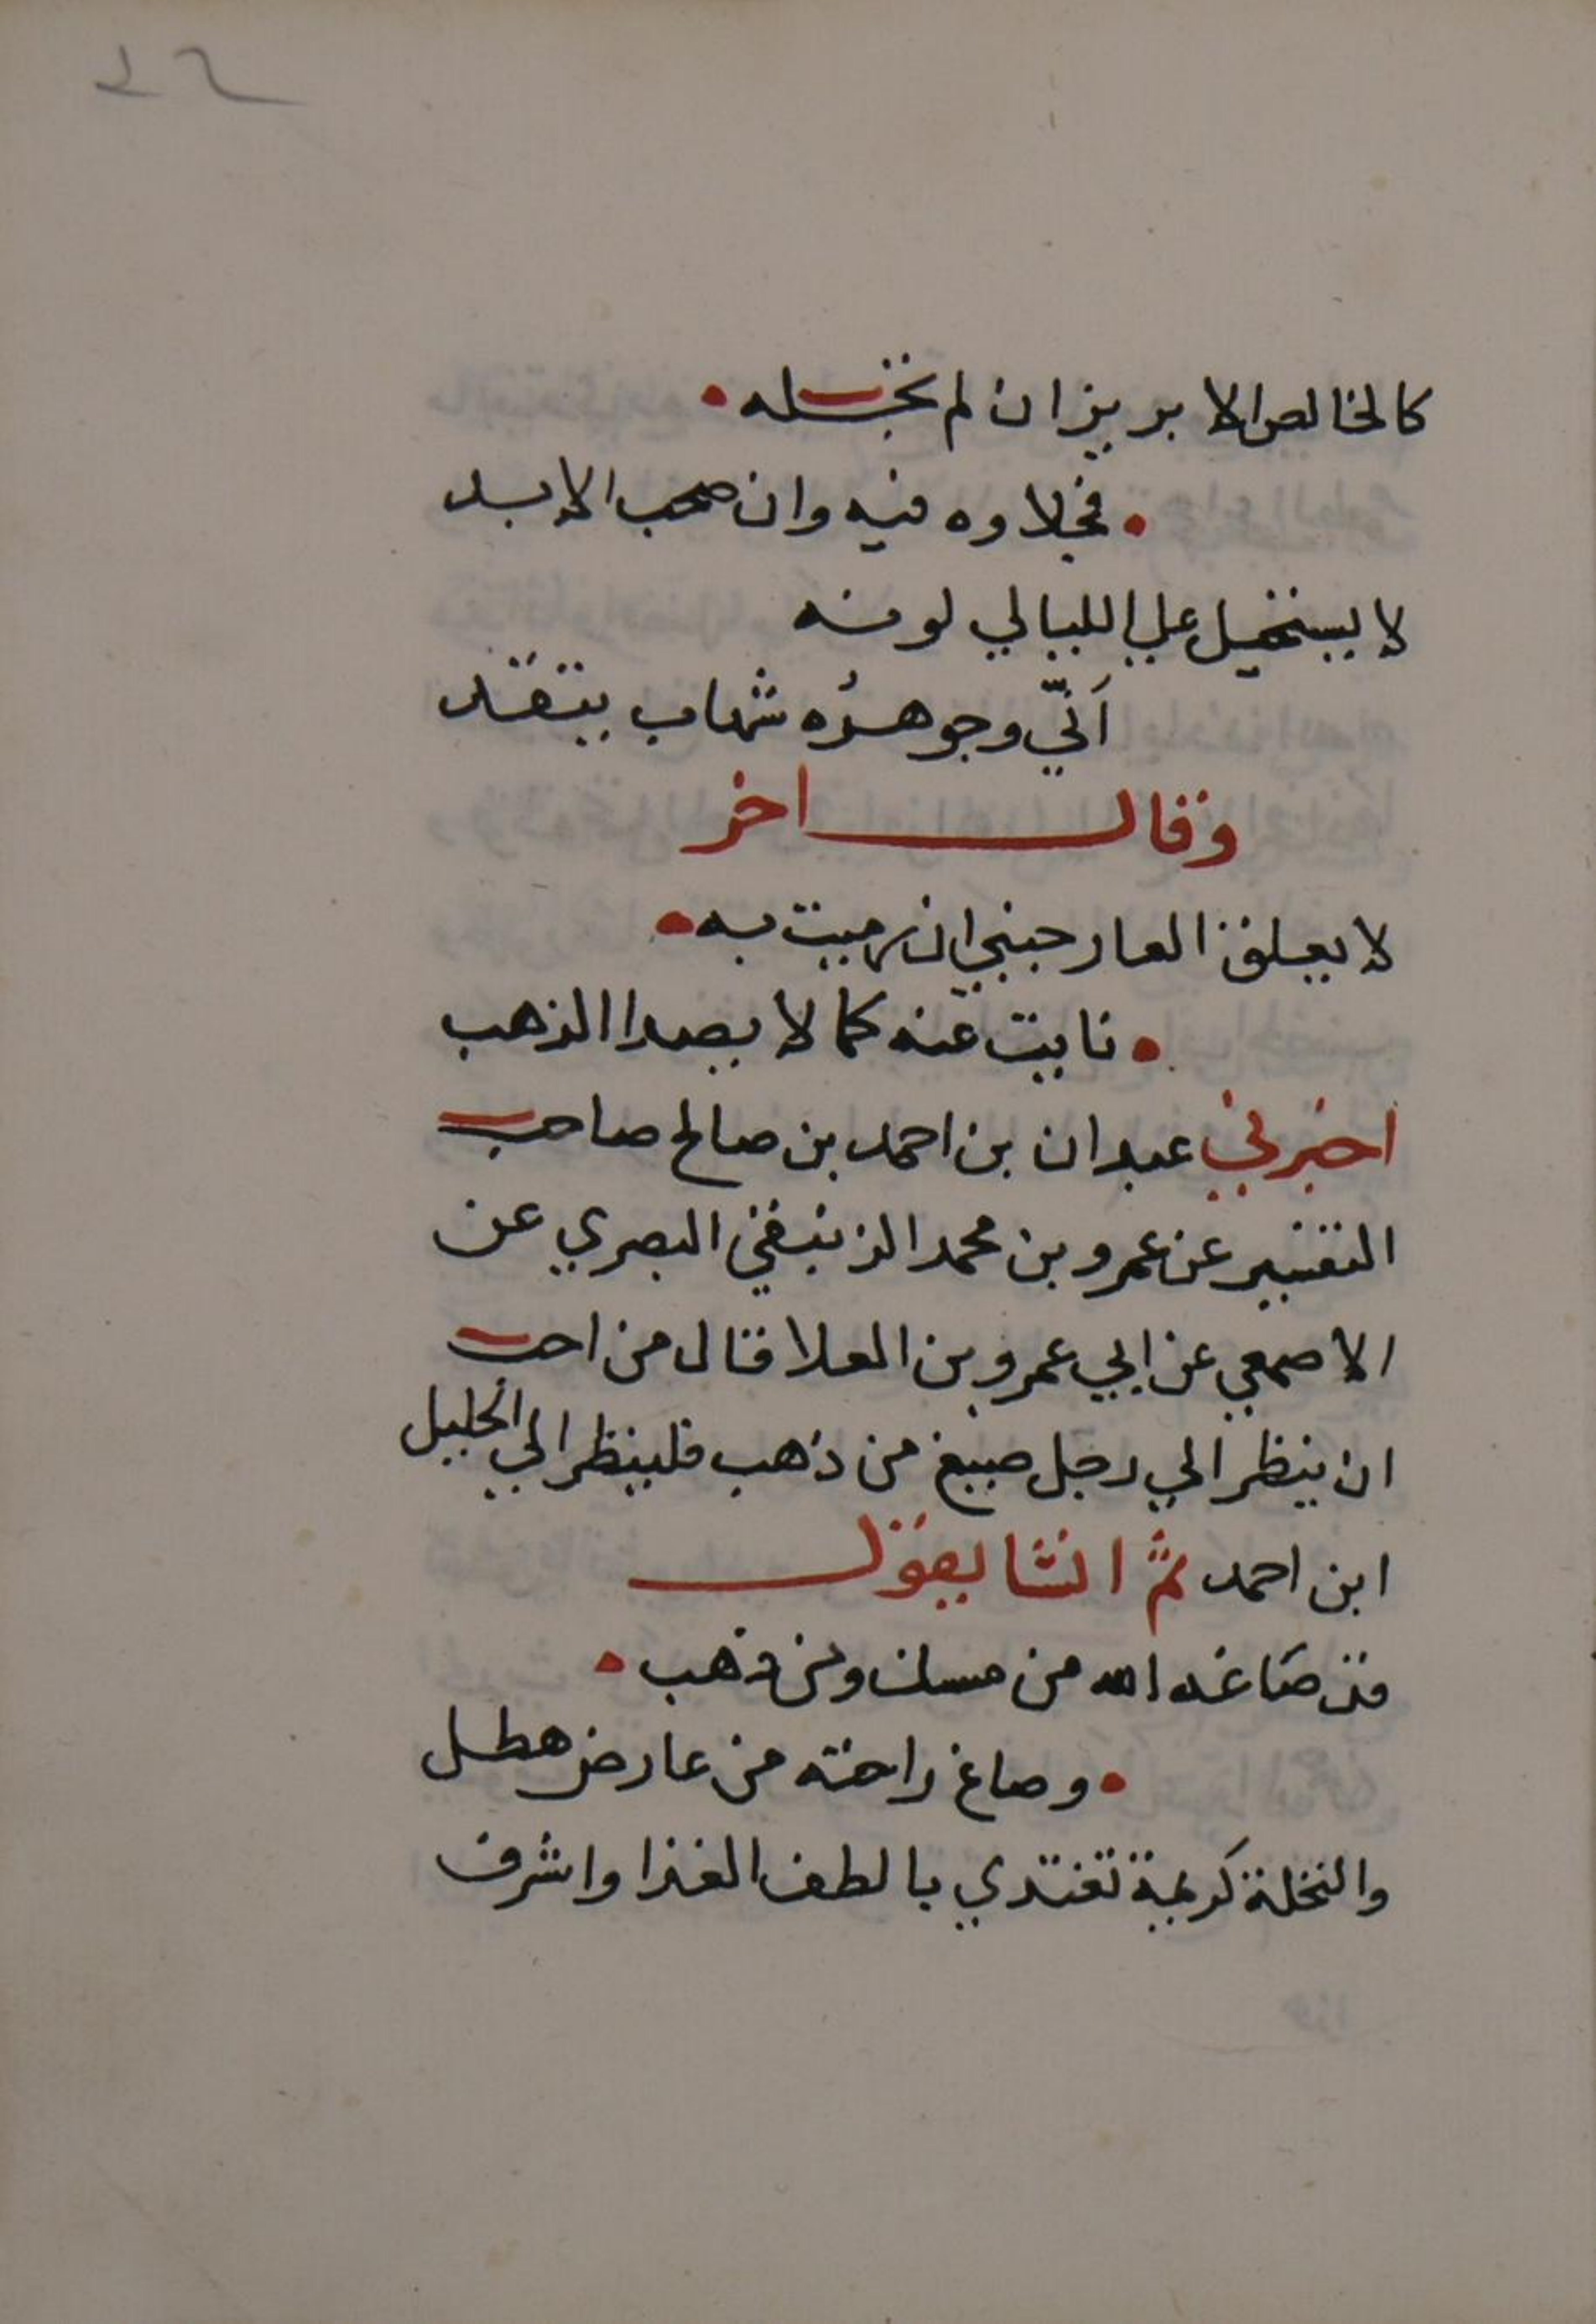 كالخالص الابريز ان لم تجتله
فجلاوه فيه وان صحب الابد
لا يستحيل علي الليالي لونه
اني وجوهره شهاب يتقد
وقال اخر
لا يعلق العار جنبي ان رميت به
نابيت عنه كما لا يصدا الذهب
اخبرني عبدان بن احمد بن صالح صاحب
التفسير عن عمرو بن محمد الزنبقي البصري عن
الاصمعي عن ابي عمرو بن العلا قال من احب
ان ينظر الي رجل صيغ من ذهب فلينظر الي الخليل
ابن احمد ثم انشا يقول
قد صاغه الله من مسك ومن ذهب
وصاغ راحته من عارض هطل
والنخلة كريمة تغتدي بالطف الغذا واشرف